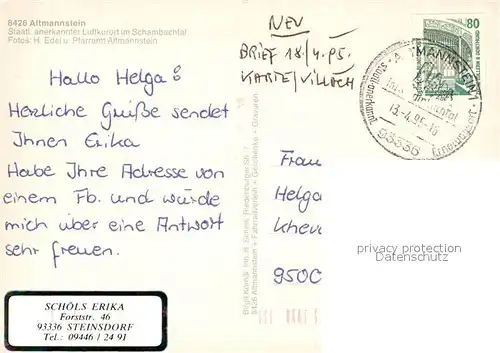 8426 Altmannstein
Staatl. anerkannter Luftkurort im Schambachtal
Fotos: H. Edel u. Pfarramt Altmannstein
NEU
BRIEF 18/4.95.
KARTE/VILLACH
80
ALTMANNSTEIN 1
13.-4.95-16
93336
Hallo Helga!
Herzliche Grüße sendet
Ihnen Erika
Habe Ihre Adresse von
einem Fb. und würde
mich über eine Antwort
sehr freuen.
Frau
Helga
Kheve
9500
privacy protection
Datenschutz
SCHÖLS ERIKA
Forststr. 46
93336 STEINSDORF
Tel.: 09446 / 24 91
8426 Altmannstein • Fahrradverleih • Geschenke • Gravuren